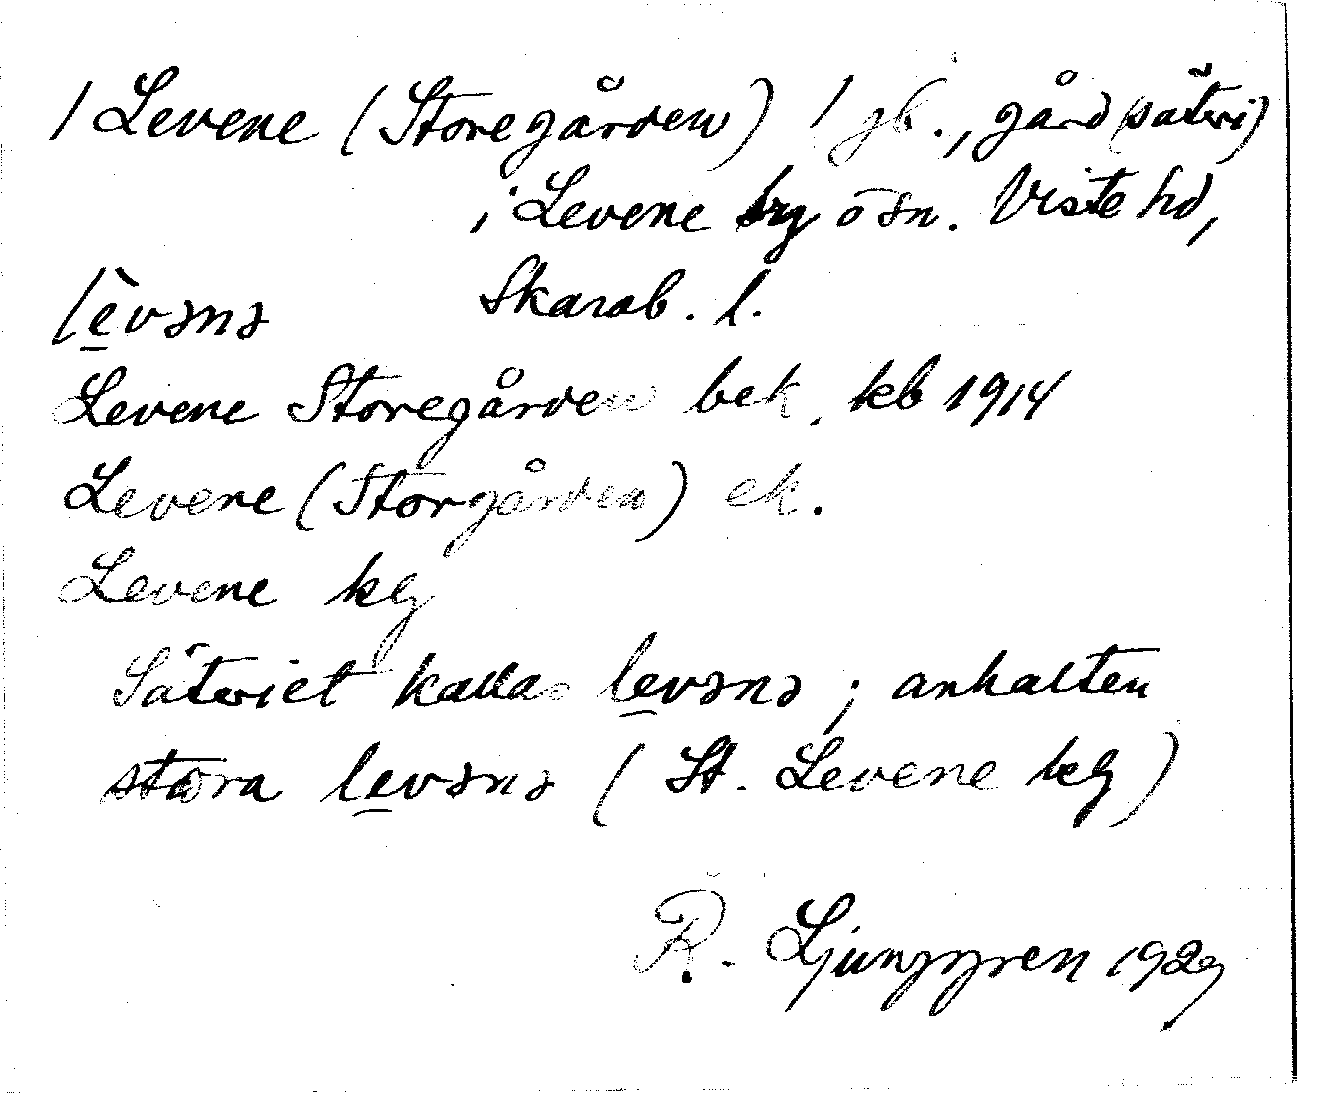 / Levene (Storegården) / gb., gård (säteri)
i Levene by o sn. Viste hd,
lèvənə Skarab. l.
Levene Storegården bek. kb 1914
Levene (Storgården) ek.
Levene kg
Säteriet kallas levənə; anhalten
stora levənə (St. Levene kg)
R. Ljunggren 1929